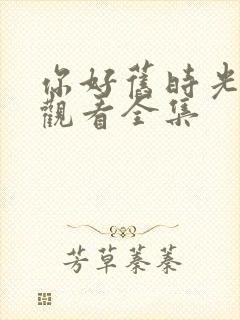 你好舊時光
觀看全集
芳草蓁蓁